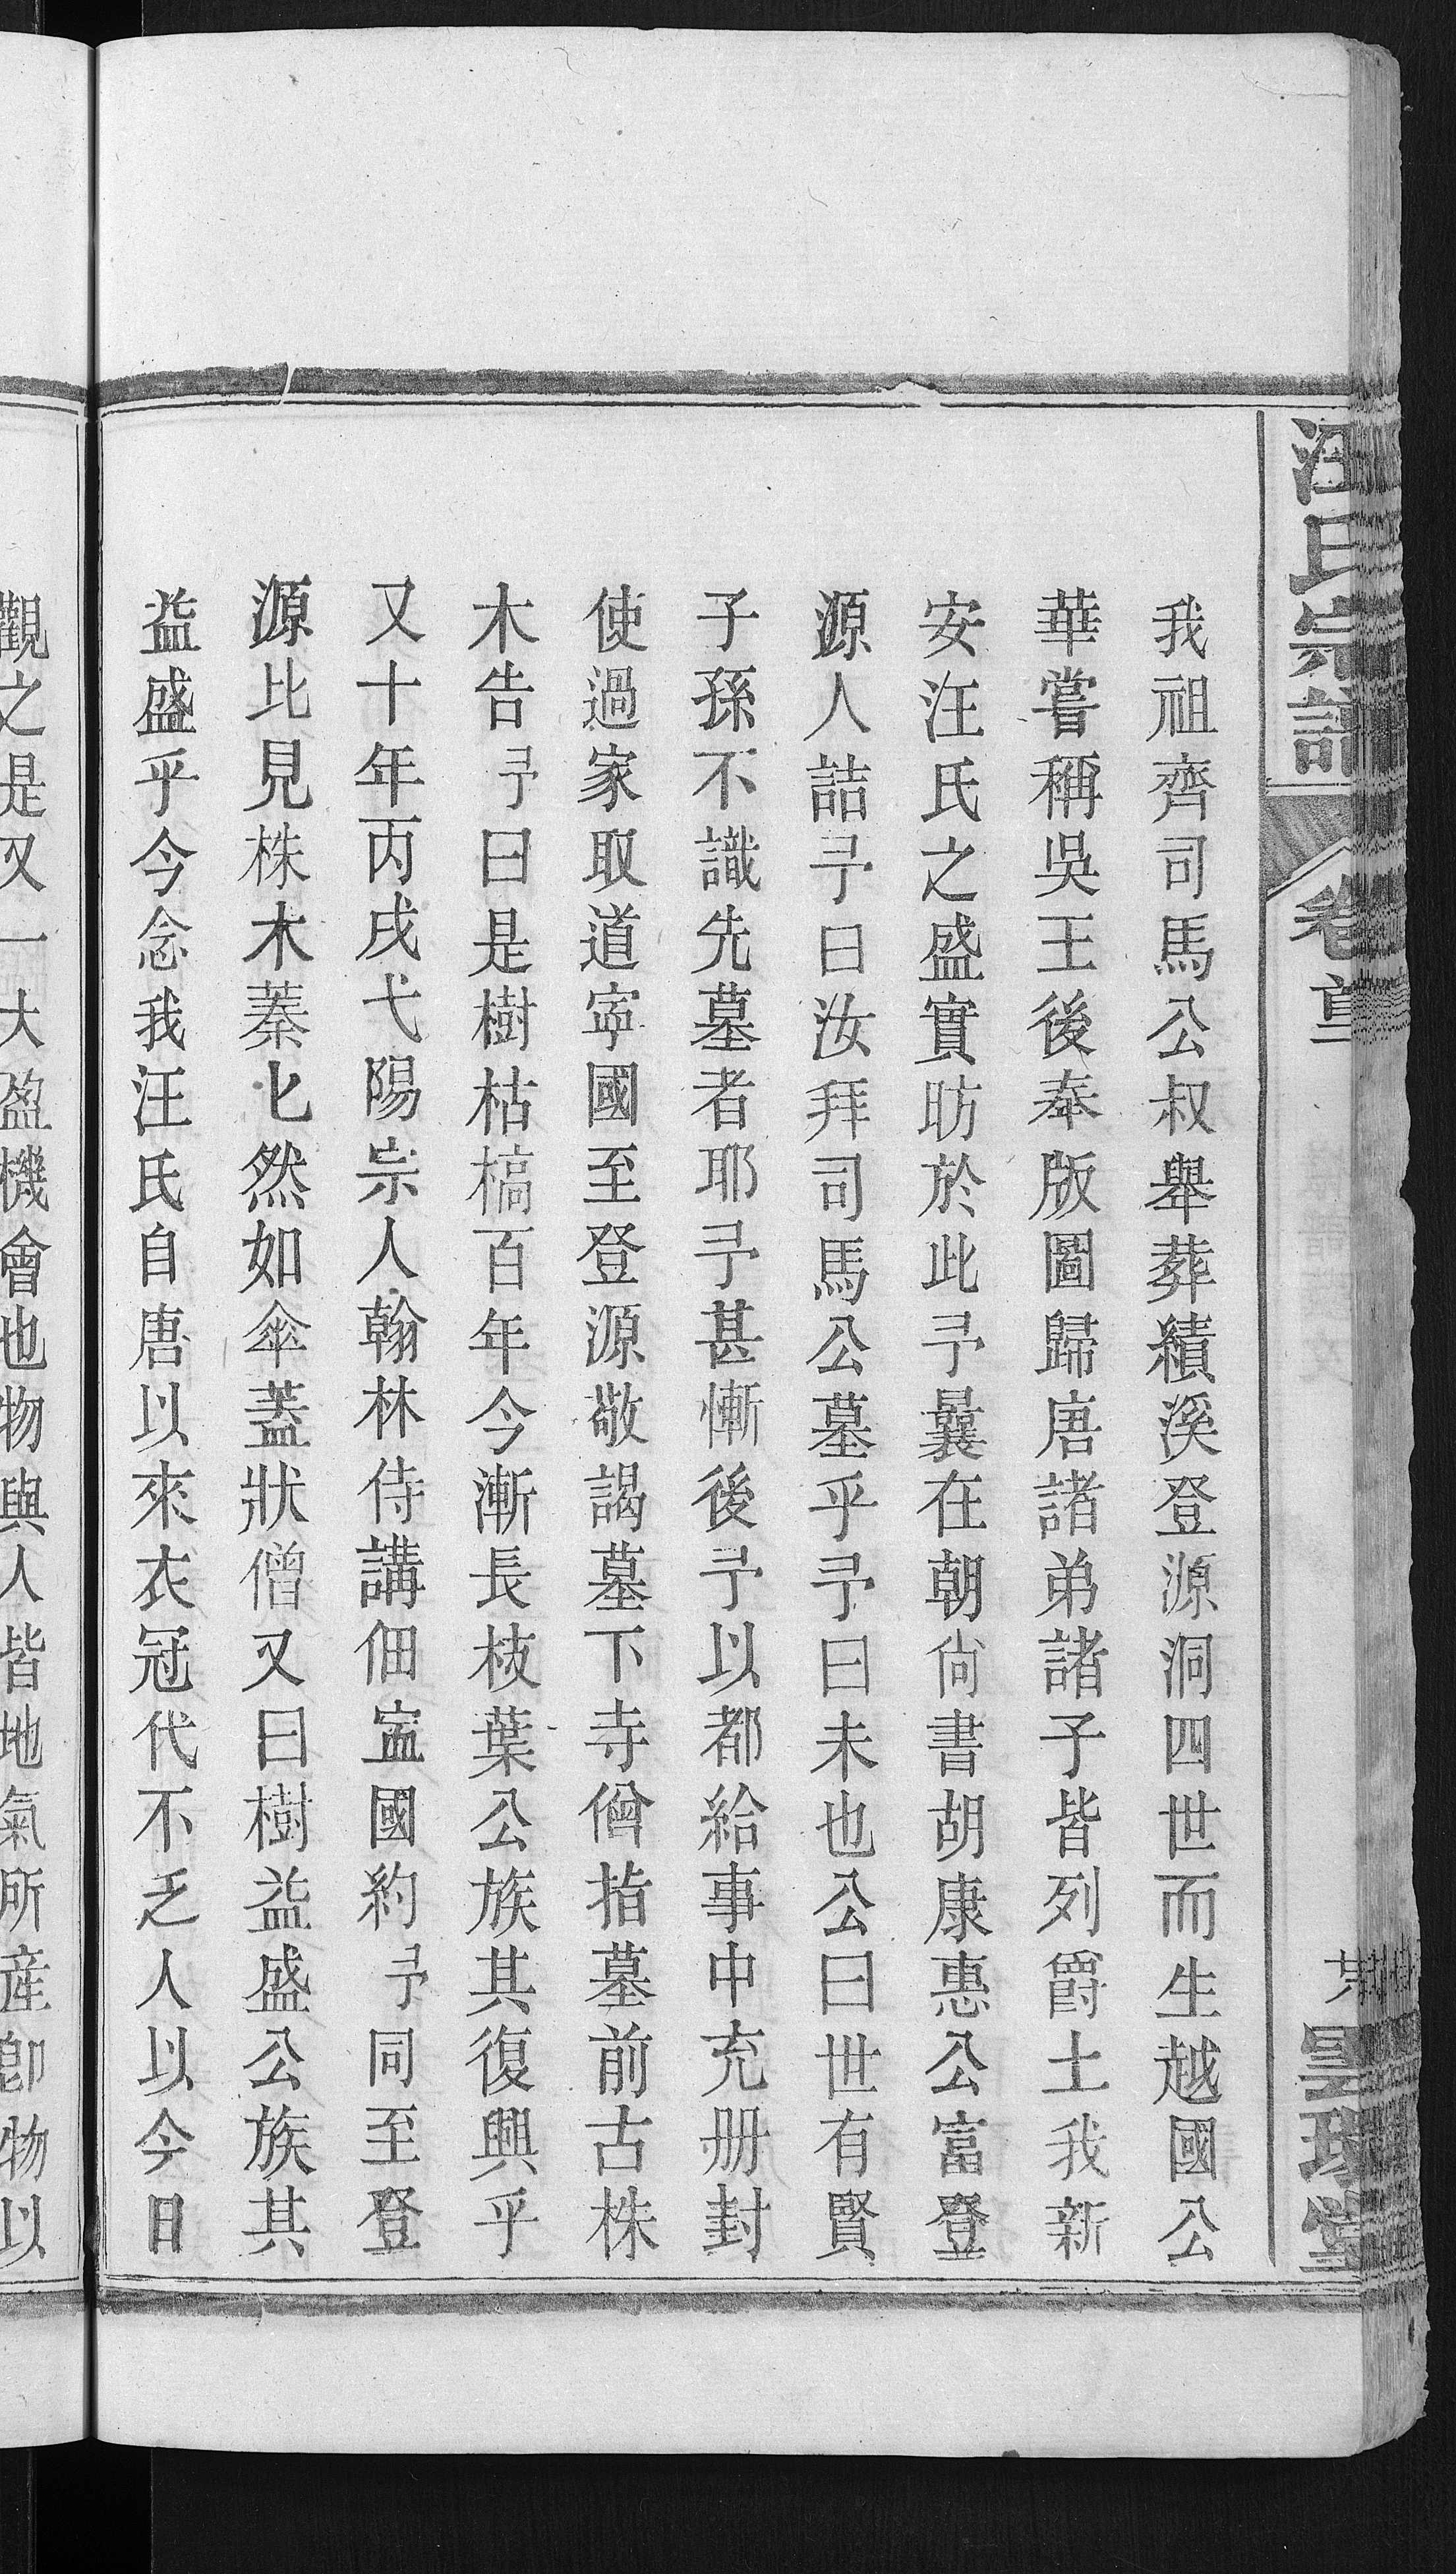 汪氏宗譜
卷首
我祖齊司馬公叔舉葬績溪登源洞四世而生越國公
華嘗稱吳王後奉版圖歸唐諸弟諸子皆列爵土我新
安汪氏之盛實昉於此予曩在朝尙書胡康惠公富登
源人詰予曰汝拜司馬公墓乎予曰未也公曰世有賢
子孫不識先墓者耶予甚慚後予以都給事中充册封
使過家取道寧國至登源敬謁墓下寺僧指墓前古株
木告予曰是樹枯槁百年今漸長枝葉公族其復興乎
又十年丙戌弋陽宗人翰林侍講佃寍國約予同至登
源比見株木蓁匕然如傘蓋狀僧又曰樹益盛公族其
益盛乎今念我汪氏自唐以來衣冠代不乏人以今日
觀之是又一大盈機會也物與人皆地氣所産卽物以